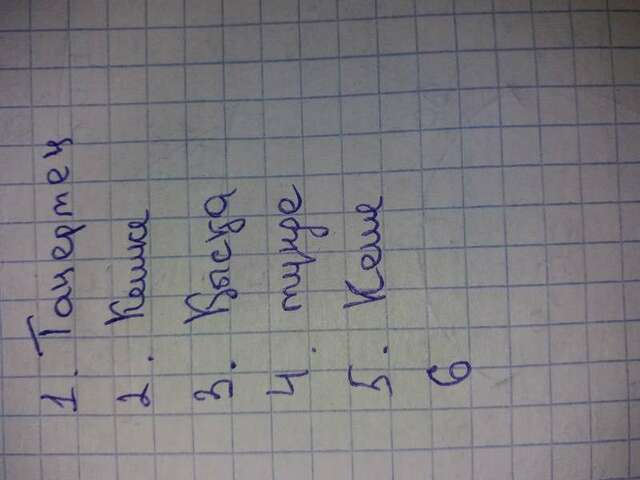 1. Таңертең
2. Кешке
3. Қысқа
4. түнде
5. Кеше
6